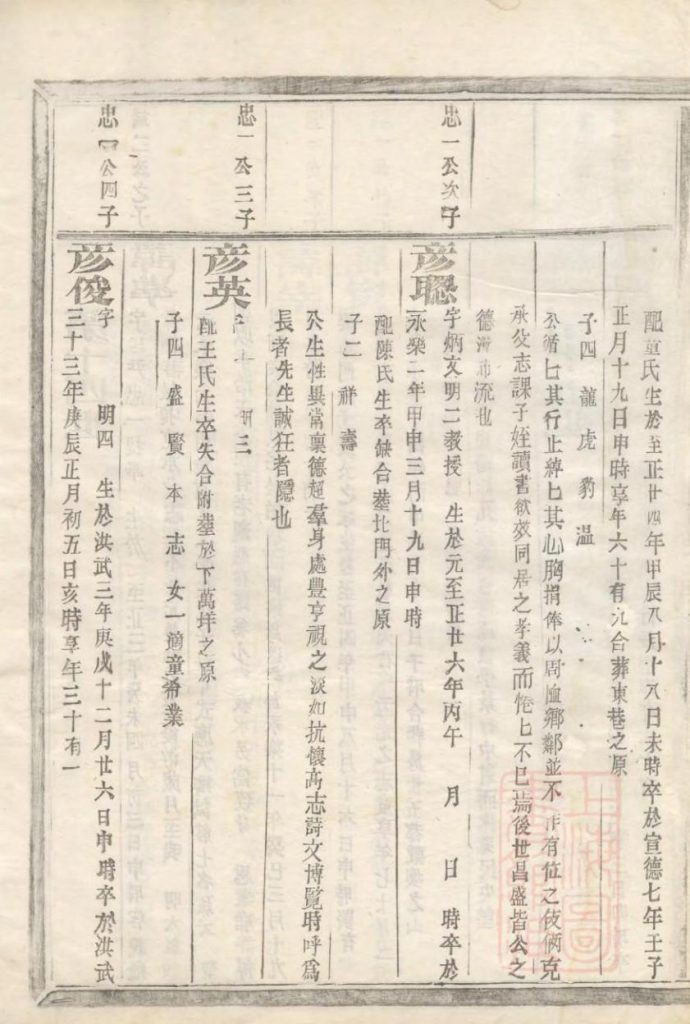 配童氏生於至正廿四年甲辰八月十八日未時卒於宣德七年壬子
正月十九日申時享年六十有九合葬東巷之原
子四 龍 虎 豹 温
公循匕其行止綽匕其心胸捐俸以周恤鄉鄰並不作有位之伎俩克
承父志課子姪讀書欲效同居之孝義而惓匕不已焉後世昌盛皆公之
德流也
忠一公次子
彦聰
字炳文明二教授 生於元至正廿六年丙午 月 日 時卒於
永樂二年甲申三月十九日申時
配陳氏生卒缺合塟北門外之原
子二 祥 壽
公生性異常稟德超羣身處豐亨視之淡如抗懷高志詩文博覽時呼為
長者先生誠狂者隱也
忠一公三子
彦英
明三
配王氏生卒失合附塟於下萬坪之原
子四 盛 賢 本 志 女一適童希業
忠一公四子
彦俊
字 明四 生於洪武三年庚戌十二月廿六日申時卒於洪武
三十三年庚辰正月初五日亥時享年三十有一